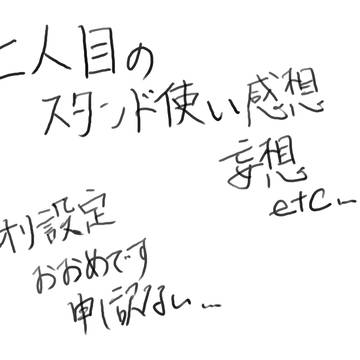 二人目の
スタンド使い感想
妄想
etc...
オリ設定
おおめです
申し訳ない...